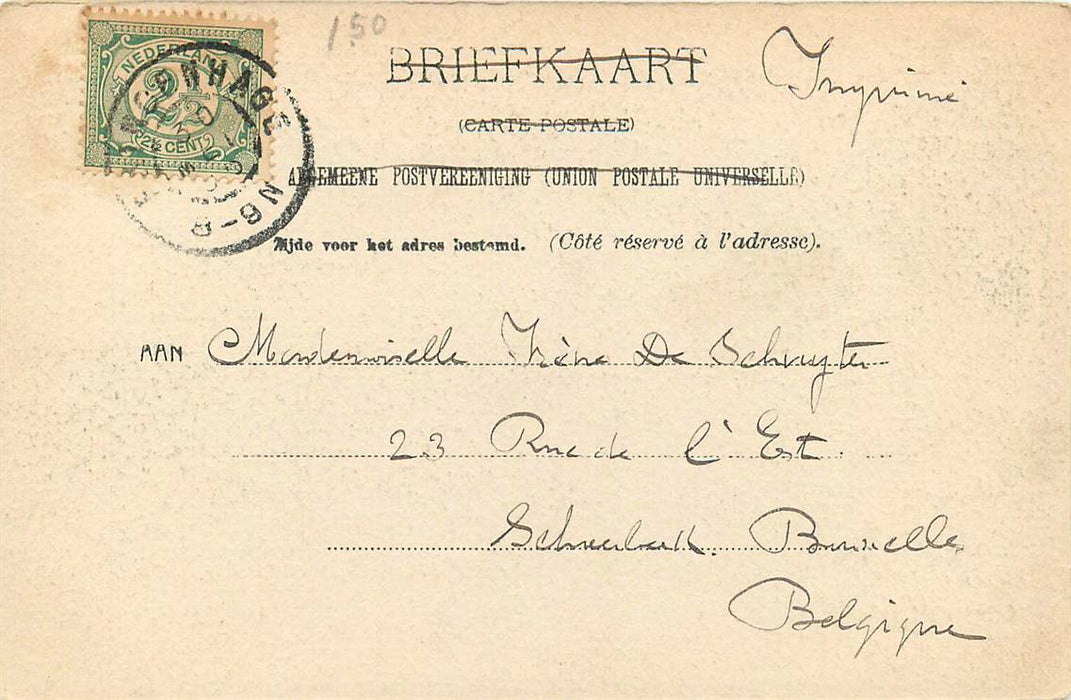 1.50
NEDERLAND
2½
2½ CENT
'S-GRAVENHAGE
8-9 N
BRIEFKAART
Imprimé
(CARTE POSTALE)
ALGEMEENE POSTVEREENIGING (UNION POSTALE UNIVERSELLE)
Zijde voor het adres bestemd. (Côté réservé à l'adresse).
AAN Mademoiselle Irène De Schruyter
23 Rue de l'Est.
Schaerbeek. Bruxelles
Belgique